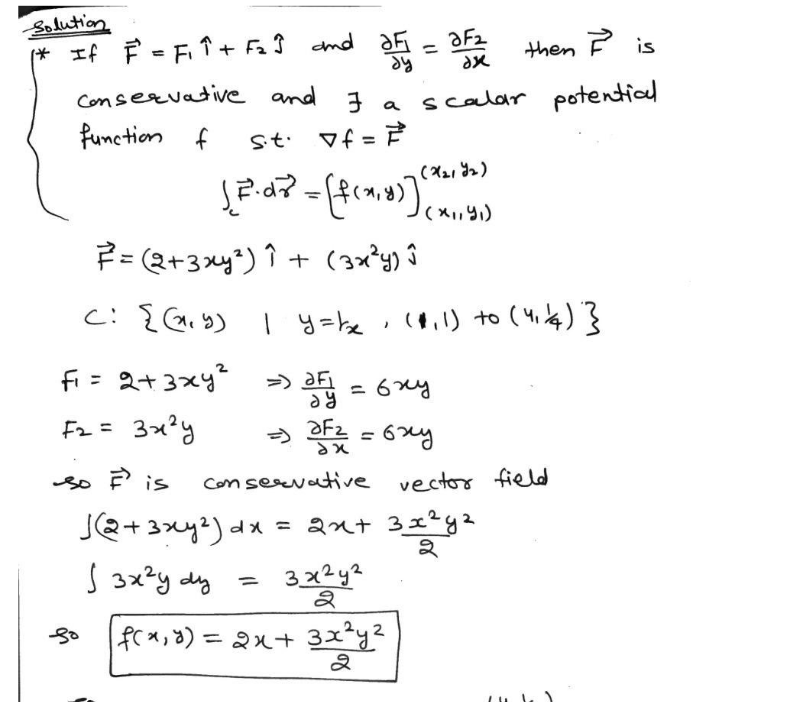 Solution
* If F⃗ = F₁ î + F₂ ĵ and ∂F₁/∂y = ∂F₂/∂x then F⃗ is
conservative and ∃ a scalar potential
function f s.t. ∇f = F⃗
∫_c F⃗·dr⃗ = [f(x,y)]_(x₁,y₁)^(x₂,y₂)
F⃗ = (2+3xy²) î + (3x²y) ĵ
C: {(x,y) | y=1/x , (1,1) to (4,1/4)}
F₁ = 2+3xy² ⇒ ∂F₁/∂y = 6xy
F₂ = 3x²y ⇒ ∂F₂/∂x = 6xy
so F⃗ is conservative vector field
∫(2+3xy²) dx = 2x + 3x²y²/2
∫ 3x²y dy = 3x²y²/2
so f(x,y) = 2x + 3x²y²/2